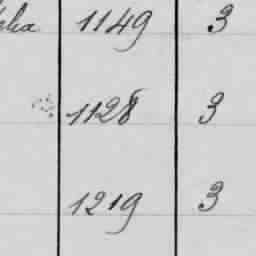 1149 3
1128 3
1219 3